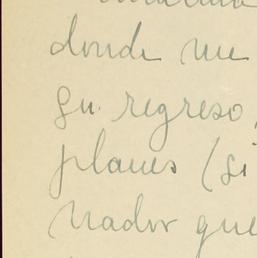 donde me
su regreso,
planes (si
nador que